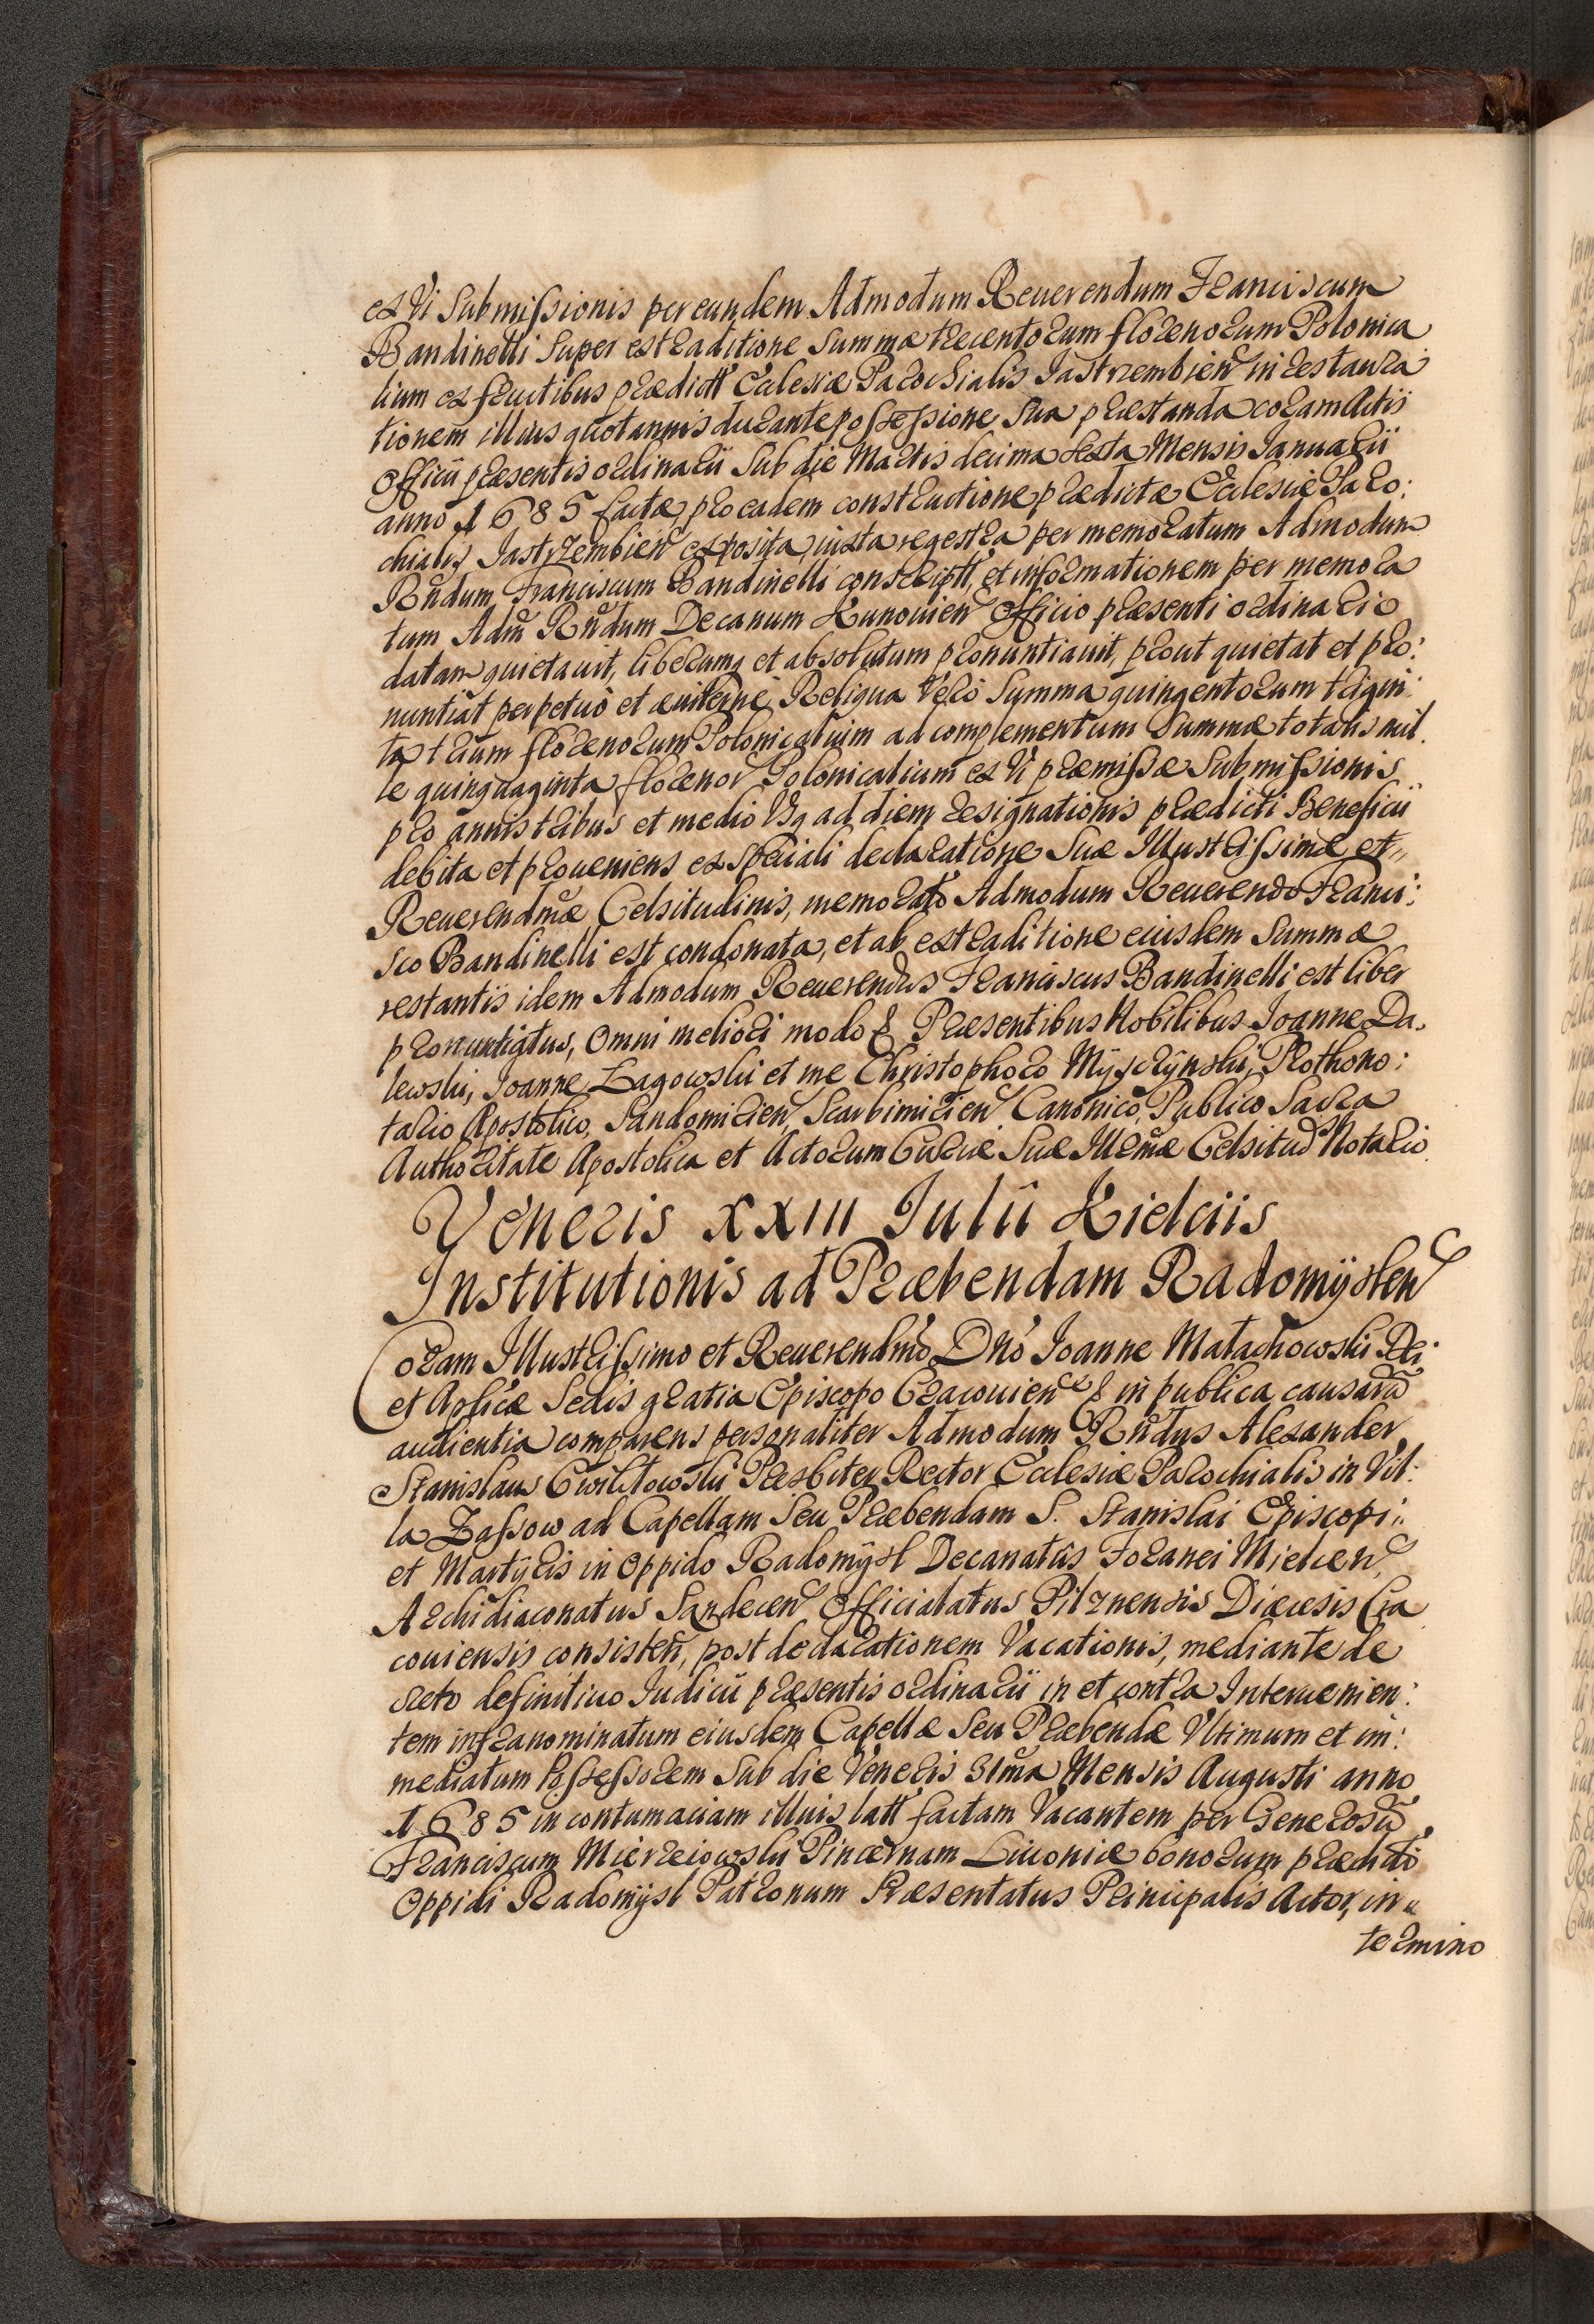 ex Vi Submissionis per eundem Admodum Reuerendum Franciscum
Bandinelli Super extraditione Summæ trecentorum florenorum Polonica
lium ex fructibus prædictt Ecclesiæ Parochialis Jastrzembien in restaura
tionem illius quotannis durante possessione Sua præstanda coram Actis
Officii præsentis ordinarii Sub die Martis decima sexta Mensis Januarii
anno 1685 factæ pro eadem constructione prædictæ Ecclesiæ Paro:
chialis Jastrzembien exposita, iuxta regestra per memoratum Admodum
Rndum Franciscum Bandinelli conscriptt, et informationem per memora
tum Adm Rndum Decanum Kunouien Officio præsenti ordinario
datam quietauit, liberumq et absolutum pronuntiauit, prout quietat et pro:
nuntiat perpetuò et æuiternè. Reliqua Verò Summa quingentorum trigin:
ta trium florenorum Polonicalium ad complementum Summæ totalis mil
le quinquaginta florenor Polonicalium ex Vi præmissæ Submissionis
pro annis tribus et medio Vsq ad diem resignationis prædicti Beneficii
debita et proueniens ex speciali declaratione Suæ Illustrissimæ et
Reuerendmæ Celsitudinis, memorato Admodum Reuerendo Franci:
sco Bandinelli est condonata, et ab extraditione eiusdem Summæ
restantis idem Admodum Reuerendus Franciscus Bandinelli est liber
pronuntiatus, Omni meliori modo & Præsentibus Nobilibus Joanne Da,
lewski, Joanne Łagowski et me Christophoro Mÿsczÿnski, Prothono:
tario Apostolico, Sandomirien, Scarbimirien Canonico, Publico Sacra
Authoritate Apostolica et Actorum Curiæ Suæ Illrmæ Celsitud Notario.
Veneris XXIII Julii Kielciis
Institutionis ad Præbendam Radomÿslen
Coram Illustrissimo et Reuerendmo Dno Joanne Małachowski Dei
et Aplicæ Sedis gratia Episcopo Cracouien & in publica causarũ
audientia comparens personaliter Admodum Rndus Alexander
Stanislaus Cwiklowski Præsbiter Rector Ecclesiæ Parochialis in Vil:
la Zassow ad Capellam Seu Præbendam S. Stanislai Episcopi:
et Martÿris in Oppido Radomÿsl Decanatus Foranei Mielcen,
Archidiaconatus Sandecen Officialatus Pilznensis Diæcesis Cra
couiensis consisten, post declarationem Vacationis, mediante de
creto definitiuo Judicii præsentis ordinarii in et contra Interuenien:
tem infranominatum eiusdem Capellæ Seu Præbendæ Vltimum et im:
mediatum Possessorem Sub die Veneris 31ma Mensis Augusti anno
1685 in contumaciam illius latt factam Vacantem per Generosũ
Franciscum Mierzeiowski Pincernam Liuoniæ bonorum prædicti
Oppidi Radomÿsl Patronum Præsentatus Principalis Actor, in
termino